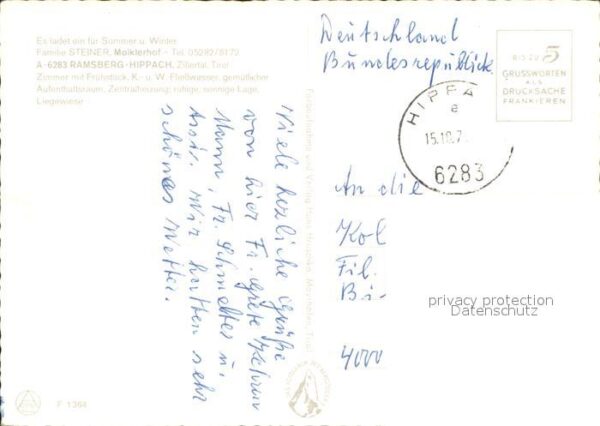 Es ladet ein für Sommer u. Winter
Familie STEINER, Moiklerhof - Tel. 05282/8179
A-6283 RAMSBERG-HIPPACH, Zillertal, Tirol
Zimmer mit Frühstück, K.- u. W. Fließwasser, gemütlicher
Aufenthaltsraum, Zentralheizung, ruhige, sonnige Lage,
Liegewiese
Viele herzliche Grüße
von hier Fr. Grete
Mann, Fr. u.
Wir hatten sehr
schönes Wetter.
F 1364
Deutschland
Bundesrepublick
BIS ZU 5
GRUSSWORTEN
ALS
DRUCKSACHE
FRANKIEREN
HIPPA
e
15.10.7
6283
An die
Kol
Fil.
Bi
privacy protection
Datenschutz
4000